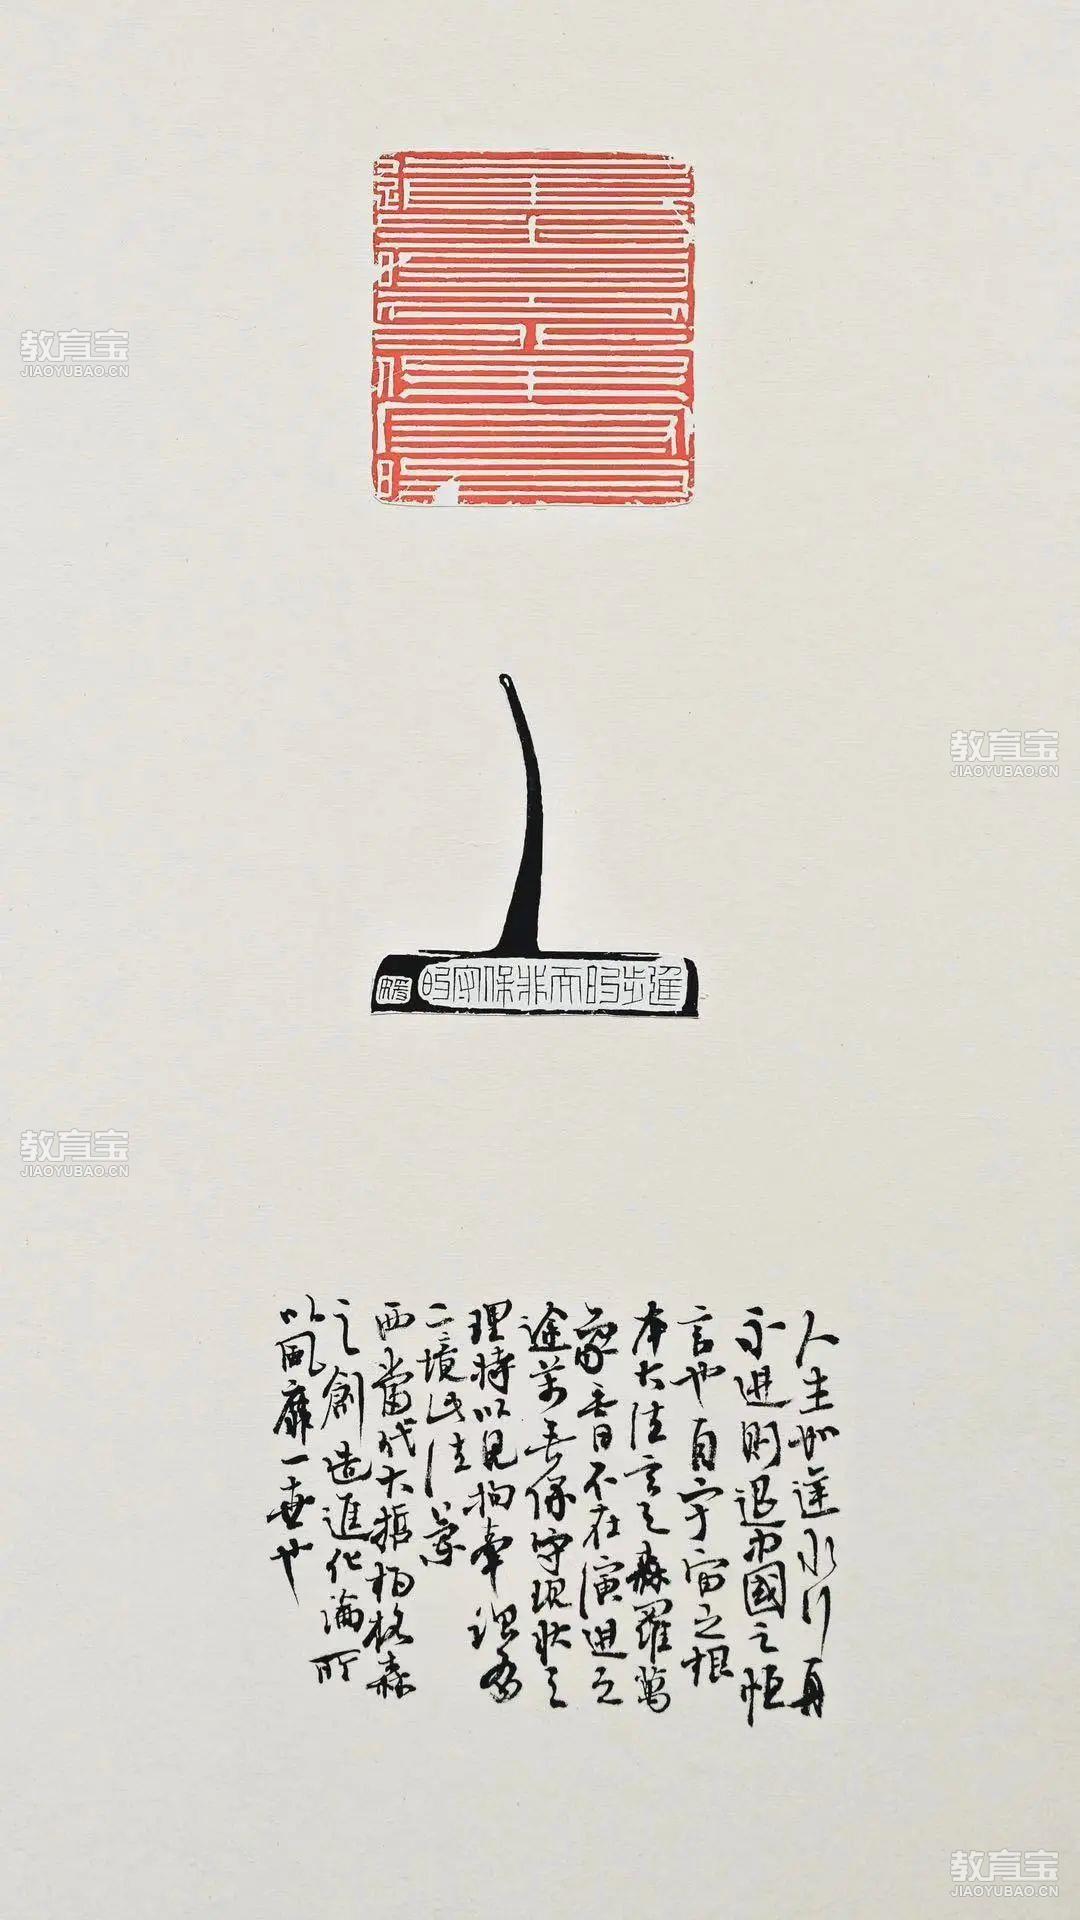 進步的而非保守的
人生如逆水行舟
不進則退中國之恒
言也自宇宙之根
本大法言之森羅萬
象無日不在演進之
途萬無保守現狀之
理特以見拘牽謂有
二境此法蘭
西當代大哲柏格森
之創造進化論所
以風靡一世也
教育宝
JIAOYUBAO.CN
教育宝
JIAOYUBAO.CN
教育宝
JIAOYUBAO.CN
教育宝
JIAOYUBAO.CN